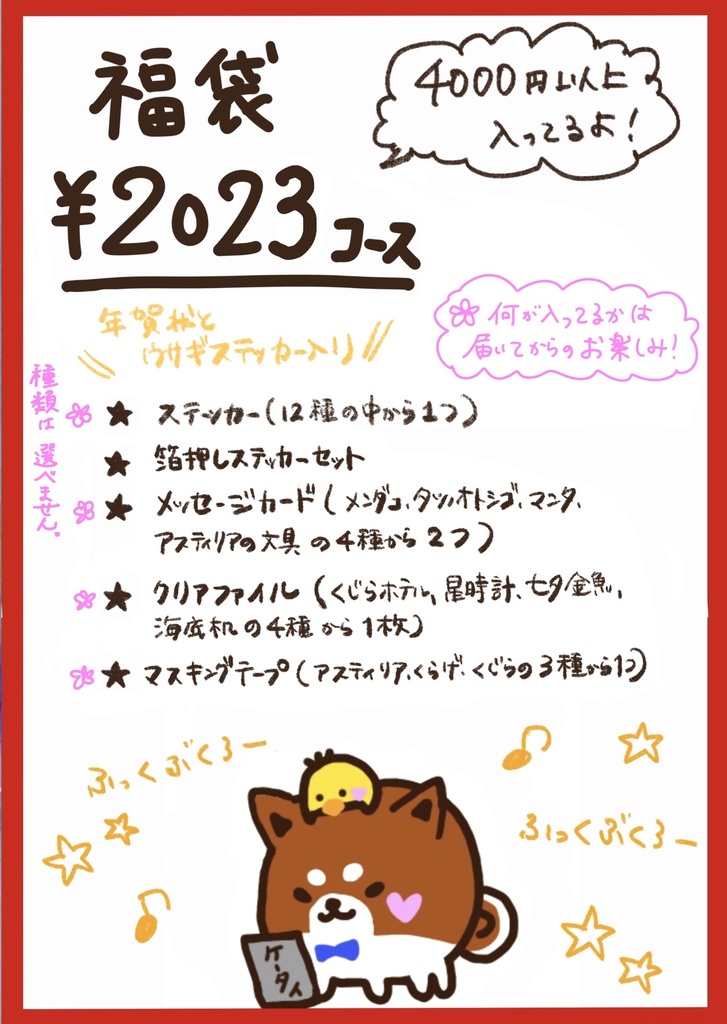 福袋
¥2023コース
4000円以上
入ってるよ!
年賀状と
ウサギステッカー入り
何が入ってるかは
届いてからのお楽しみ!
種類は選べません。
★ ステッカー(12種の中から1つ)
★ 箔押しステッカーセット
★ メッセージカード(メンダコ、タツノオトシゴ、マンタ、
アスティリアの文具の4種から2つ)
★ クリアファイル(くじらホテル、星時計、七夕金魚、
海底机の4種から1枚)
★ マスキングテープ(アスティリア、くらげ、くじらの3種から1つ)
ふっくぶくろー
ふっくぶくろー
ケータイ